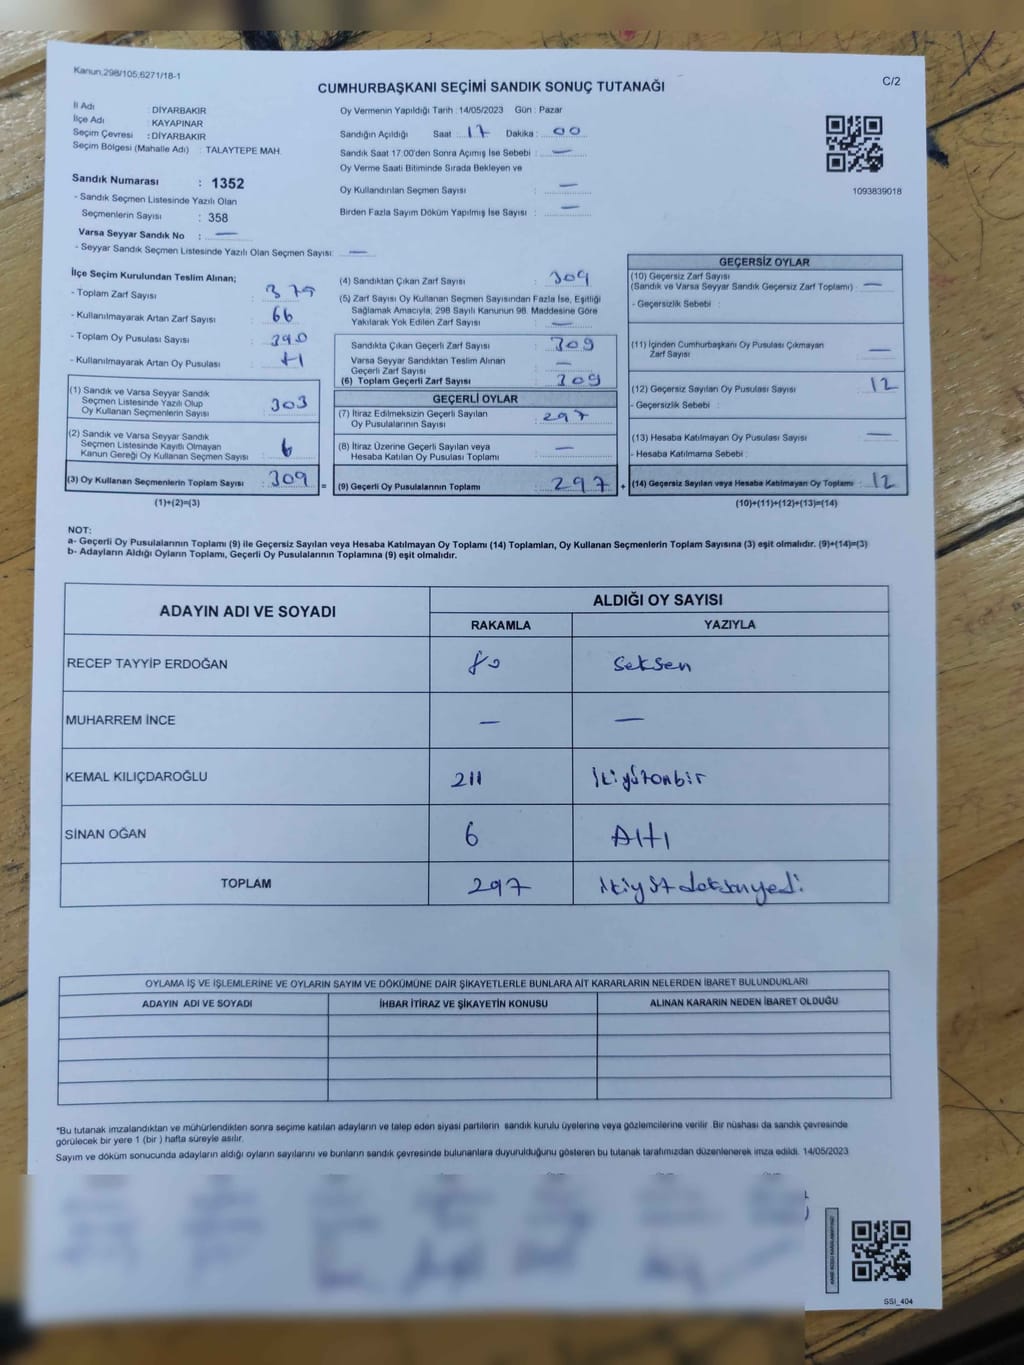 Kanun,298/105,6271/18-1
C/2
CUMHURBAŞKANI SEÇİMİ SANDIK SONUÇ TUTANAĞI
İl Adı : DİYARBAKIR
İlçe Adı : KAYAPINAR
Seçim Çevresi : DİYARBAKIR
Seçim Bölgesi (Mahalle Adı) : TALAYTEPE MAH.
Sandık Numarası : 1352
- Sandık Seçmen Listesinde Yazılı Olan
Seçmenlerin Sayısı : 358
Varsa Seyyar Sandık No : —
- Seyyar Sandık Seçmen Listesinde Yazılı Olan Seçmen Sayısı: —
Oy Vermenin Yapıldığı Tarih : 14/05/2023 Gün : Pazar
Sandığın Açıldığı Saat : 17 Dakika : 00
Sandık Saat 17:00'den Sonra Açımış İse Sebebi : —
Oy Verme Saati Bitiminde Sırada Bekleyen ve
Oy Kullandırılan Seçmen Sayısı : —
Birden Fazla Sayım Döküm Yapılmış İse Sayısı : —
1093839018
İlçe Seçim Kurulundan Teslim Alınan;
- Toplam Zarf Sayısı : 375
- Kullanılmayarak Artan Zarf Sayısı : 66
- Toplam Oy Pusulası Sayısı : 390
- Kullanılmayarak Artan Oy Pusulası :
(1) Sandık ve Varsa Seyyar Sandık
Seçmen Listesinde Yazılı Olup
Oy Kullanan Seçmenlerin Sayısı : 303
(2) Sandık ve Varsa Seyyar Sandık
Seçmen Listesinde Kayıtlı Olmayan
Kanun Gereği Oy Kullanan Seçmen Sayısı : 6
(3) Oy Kullanan Seçmenlerin Toplam Sayısı : 309 =
(1)+(2)=(3)
(4) Sandıktan Çıkan Zarf Sayısı : 309
(5) Zarf Sayısı Oy Kullanan Seçmen Sayısından Fazla İse, Eşitliği
Sağlamak Amacıyla; 298 Sayılı Kanunun 98. Maddesine Göre
Yakılarak Yok Edilen Zarf Sayısı : —
Sandıkta Çıkan Geçerli Zarf Sayısı : 309
Varsa Seyyar Sandıktan Teslim Alınan
Geçerli Zarf Sayısı : —
(6) Toplam Geçerli Zarf Sayısı : 309
GEÇERLİ OYLAR
(7) İtiraz Edilmeksizin Geçerli Sayılan
Oy Pusulalarının Sayısı : 297
(8) İtiraz Üzerine Geçerli Sayılan veya
Hesaba Katılan Oy Pusulası Toplamı : —
(9) Geçerli Oy Pusulalarının Toplamı : 297 +
GEÇERSİZ OYLAR
(10) Geçersiz Zarf Sayısı
(Sandık ve Varsa Seyyar Sandık Geçersiz Zarf Toplamı) : —
- Geçersizlik Sebebi :
(11) İçinden Cumhurbaşkanı Oy Pusulası Çıkmayan
Zarf Sayısı : —
(12) Geçersiz Sayılan Oy Pusulası Sayısı : 12
- Geçersizlik Sebebi :
(13) Hesaba Katılmayan Oy Pusulası Sayısı : —
- Hesaba Katılmama Sebebi :
(14) Geçersiz Sayılan veya Hesaba Katılmayan Oy Toplamı : 12
(10)+(11)+(12)+(13)=(14)
NOT:
a- Geçerli Oy Pusulalarının Toplamı (9) ile Geçersiz Sayılan veya Hesaba Katılmayan Oy Toplamı (14) Toplamları, Oy Kullanan Seçmenlerin Toplam Sayısına (3) eşit olmalıdır. (9)+(14)=(3)
b- Adayların Aldığı Oyların Toplamı, Geçerli Oy Pusulalarının Toplamına (9) eşit olmalıdır.
ADAYIN ADI VE SOYADI ALDIĞI OY SAYISI
RAKAMLA YAZIYLA
RECEP TAYYİP ERDOĞAN 80 Seksen
MUHARREM İNCE — —
KEMAL KILIÇDAROĞLU 211 İkiyüzonbir
SİNAN OĞAN 6 Altı
TOPLAM 297 ikiyüzdoksanyedi
OYLAMA İŞ VE İŞLEMLERİNE VE OYLARIN SAYIM VE DÖKÜMÜNE DAİR ŞİKAYETLERLE BUNLARA AİT KARARLARIN NELERDEN İBARET BULUNDUKLARI
ADAYIN ADI VE SOYADI İHBAR İTİRAZ VE ŞİKAYETİN KONUSU ALINAN KARARIN NEDEN İBARET OLDUĞU
*Bu tutanak imzalandıktan ve mühürlendikten sonra seçime katılan adayların ve talep eden siyasi partilerin sandık kurulu üyelerine veya gözlemcilerine verilir. Bir nüshası da sandık çevresinde
görülecek bir yere 1 (bir ) hafta süreyle asılır.
Sayım ve döküm sonucunda adayların aldığı oyların sayılarını ve bunların sandık çevresinde bulunanlara duyurulduğunu gösteren bu tutanak tarafımızdan düzenlenerek imza edildi. 14/05/2023
SSİ_404